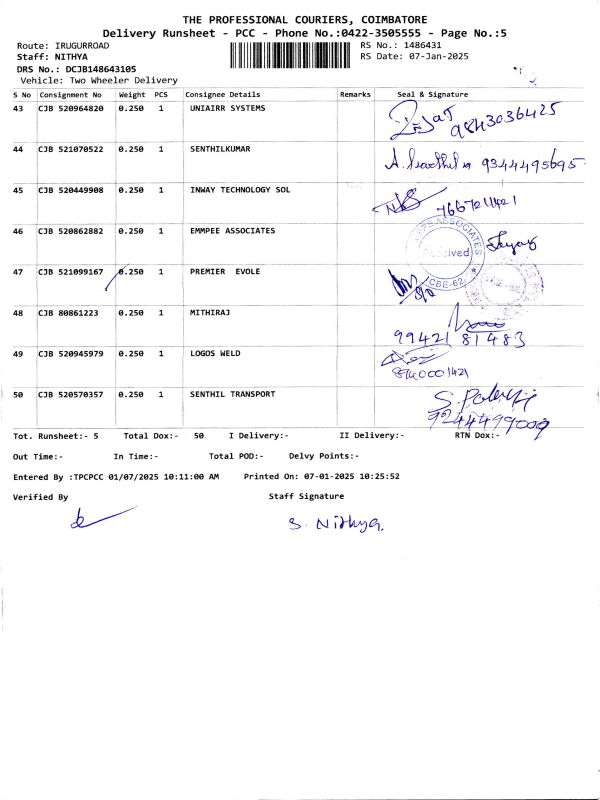 THE PROFESSIONAL COURIERS, COIMBATORE
Delivery Runsheet - PCC - Phone No.:0422-3505555 - Page No.:5
Route: IRUGURROAD RS No.: 1486431
Staff: NITHYA RS Date: 07-Jan-2025
DRS No.: DCJB148643105
Vehicle: Two Wheeler Delivery
S No Consignment No Weight PCS Consignee Details Remarks Seal & Signature
43 CJB 520964820 0.250 1 UNIAIRR SYSTEMS 9843036425
44 CJB 521070522 0.250 1 SENTHILKUMAR 9344495695
45 CJB 520449908 0.250 1 INWAY TECHNOLOGY SOL
46 CJB 520862882 0.250 1 EMMPEE ASSOCIATES
47 CJB 521099167 0.250 1 PREMIER EVOLE
48 CJB 80861223 0.250 1 MITHIRAJ 99421 81483
49 CJB 520945979 0.250 1 LOGOS WELD
50 CJB 520570357 0.250 1 SENTHIL TRANSPORT 9244499009
Tot. Runsheet:- 5 Total Dox:- 50 I Delivery:- II Delivery:- RTN Dox:-
Out Time:- In Time:- Total POD:- Delvy Points:-
Entered By :TPCPCC 01/07/2025 10:11:00 AM Printed On: 07-01-2025 10:25:52
Verified By Staff Signature
S. Nithya.